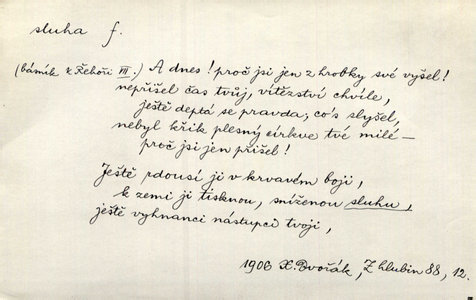 sluha f.
(básník k Řehoři VII.) A dnes! proč jsi jen z hrobky své vyšel!
nepřišel čas tvůj, vítězství chvíle,
ještě deptá se pravda, co's slyšel,
nebyl křik plesný církve tvé milé –
proč jsi jen přišel!
Ještě rdousí ji v krvavém boji,
k zemi ji tisknou, sníženou sluhu,
ještě vyhnanci nástupci tvoji,
1906 X. Dvořák, Z hlubin 88, 12.